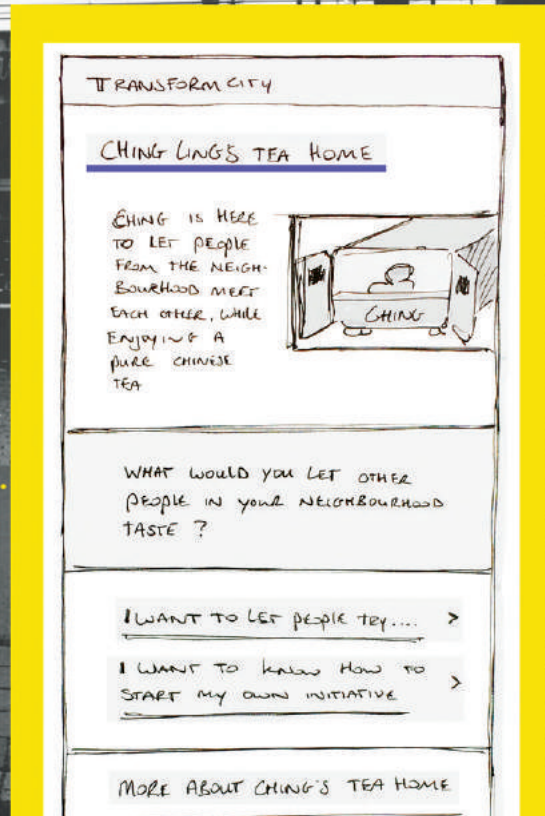 TRANSFORMCITY
CHING LING'S TEA HOME
CHING IS HERE
TO LET PEOPLE
FROM THE NEIGH-
BOURHOOD MEET
EACH OTHER, WHILE
ENJOYING A
PURE CHINESE
TEA
CHING
WHAT WOULD YOU LET OTHER
PEOPLE IN YOUR NEIGHBOURHOOD
TASTE ?
I WANT TO LET PEOPLE TRY.... >
I WANT TO KNOW HOW TO
START MY OWN INITIATIVE >
MORE ABOUT CHING'S TEA HOME